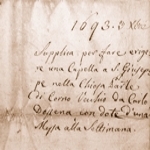 1693. 3 Xbre
Supplica per fare erige
re una Capella a S. Giusep
pe nella Chiesa Parle
di Corno Vecchio da Carlo
con dote d'una
Messa alla Settimana.